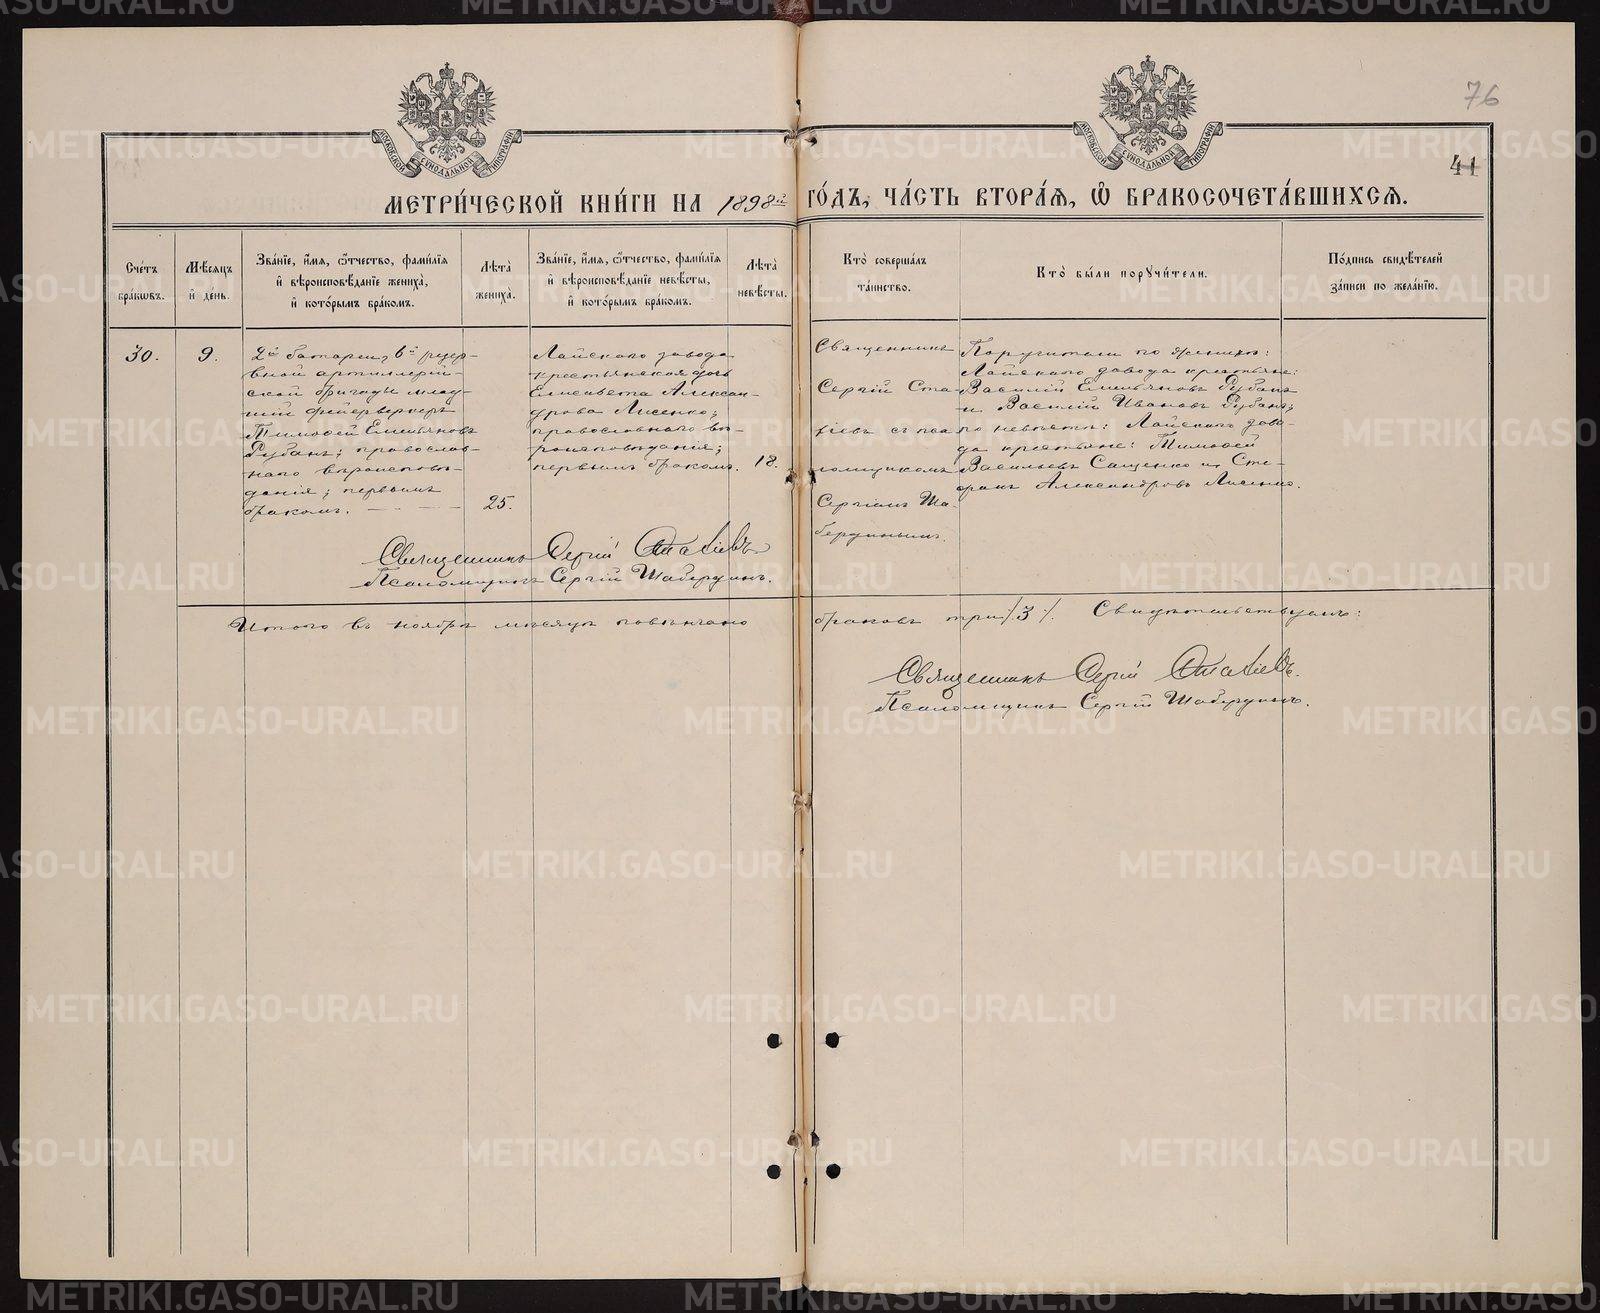 76
41
МОСКОВСКОЙ СѴНОДАЛЬНОЙ ТИПОГРАФІИ
МОСКОВСКОЙ СѴНОДАЛЬНОЙ ТИПОГРАФІИ
МЕТРИ́ЧЕСКОЙ КНИ́ГИ НА 1898й ГО́ДЪ, ЧА́СТЬ ВТОРА́Я, Ѽ БРАКОСОЧЕТА́ВШИХСЯ.
Сче́тъ
бра́ковъ.
Мѣ́сяцъ
и҆ де́нь.
Зва́нїе, и҆́мя, ѻ҆́тчество, фами́лїя
и҆ вѣроисповѣ́данїе жениха̀,
и҆ кото́рымъ бра́комъ.
Лѣ́та
жениха̀.
Зва́нїе, и҆́мя, ѻ҆́тчество, фами́лїя
и҆ вѣроисповѣ́данїе невѣ́сты,
и҆ кото́рымъ бра́комъ.
Лѣ́та
невѣ́сты.
Кто̀ соверша́лъ
та́инство.
Кто̀ бы́ли порꙋчи́тели.
По́дпись свидѣ́телей
за́писи по жела́нїю.
30.
9.
2й батареи, 6й резер-
вной артиллерій-
ской бригады млад-
шій фейерверкеръ
Тимоѳей Емельяновъ
Рубанъ; православ-
наго вѣроисповѣ-
данія; первымъ
бракомъ.
25.
Лайскаго завода
крестьянская дочь
Елисавета Алексан-
дрова Лисенко;
православнаго вѣ-
роисповѣданія;
первымъ бракомъ.
18.
Священникъ
Сергій Ста-
хіевъ съ пса
ломщикомъ
Сергіемъ Ша-
бердинымъ.
Поручители по женихѣ:
Лайскаго завода крестьяне:
Василій Емельяновъ Рубанъ
и Василій Ивановъ Рубанъ;
по невѣстѣ: Лайскаго заво-
да крестьяне: Тимоѳей
Васильевъ Сащенко и Сте-
фанъ Александровъ Лисенко.
Священникъ Сергій Стахіевъ
Псаломщикъ Сергій Шабердинъ.
Итого въ ноябрѣ мѣсяцѣ повѣнчано браковъ три /:3:/. Свидѣтельствуемъ:
Священникъ Сергій Стахіевъ.
Псаломщикъ Сергій Шабердинъ.
METRIKI.GASO-URAL.RU